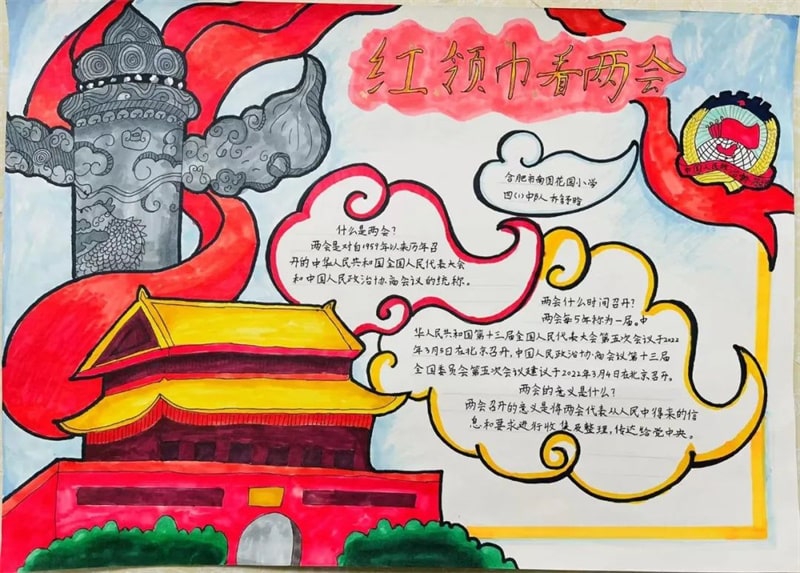 红领巾看两会
中国人民政治
合肥市南国花园小学
四(1)中队
什么是两会?
两会是对自1959年以来历年召
开的中华人民共和国全国人民代表大会
和中国人民政治协商会议的统称。
两会什么时间召开?
两会每5年称为一届。中
华人民共和国第十三届全国人民代表大会第五次会议于2022
年3月5日在北京召开,中国人民政治协商会议第十三届
全国委员会第五次会议建议于2022年3月4日在北京召开。
两会的意义是什么?
两会召开的意义是得两会代表从人民中得来的信
息和要求进行收集及整理,传达给党中央。